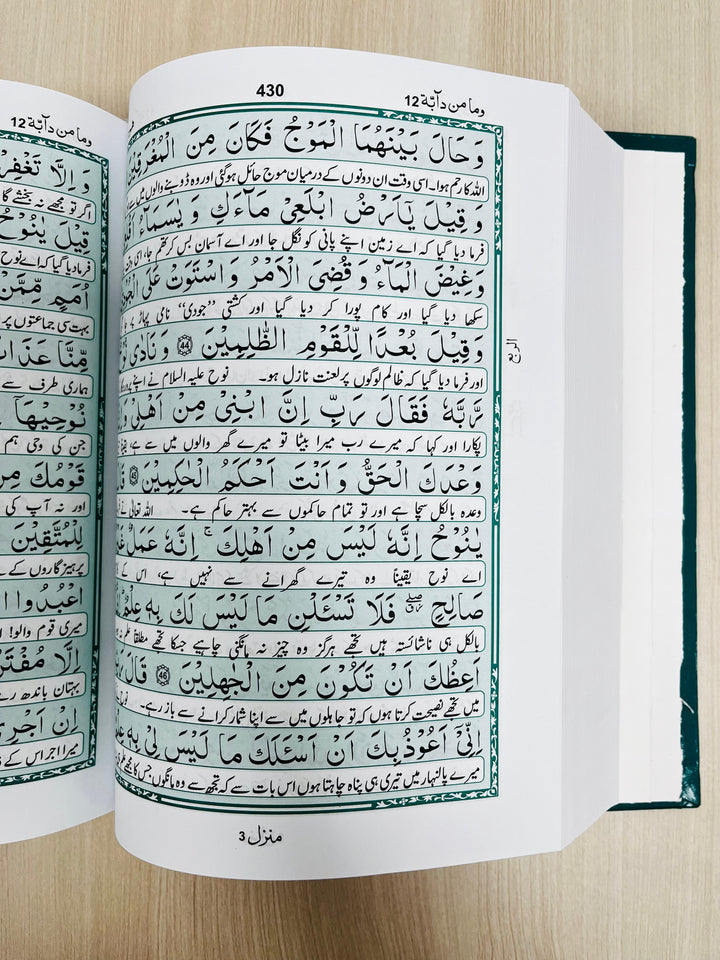 وما من دآبّة 12
430
وَحَالَ بَيْنَهُمَا الْمَوْجُ فَكَانَ مِنَ
اللہ کا رحم ہوا۔ اسی وقت ان دونوں کے درمیان موج حائل ہوگئی اور وہ ڈوبنے والوں میں سے
وَقِيْلَ يٰٓاَرْضُ ابْلَعِيْ مَآءَكِ وَ يٰسَمَآءُ
فرما دیا گیا کہ اے زمین اپنے پانی کو نگل جا اور اے آسمان بس کر تھم جا، اسی وقت
وَغِيْضَ الْمَآءُ وَ قُضِيَ الْاَمْرُ وَ اسْتَوَتْ عَلَى
سکھا دیا گیا اور کام پورا کر دیا گیا اور کشتی ’’جودی‘‘ نامی پہاڑ پر
وَقِيْلَ بُعْدًا لِّلْقَوْمِ الظّٰلِمِيْنَ 44 وَ نَادٰى
اور فرما دیا گیا کہ ظالم لوگوں پر لعنت نازل ہو۔ نوح علیہ السلام نے اپنے
رَّبَّهٗ فَقَالَ رَبِّ اِنَّ ابْنِيْ مِنْ اَهْلِيْ
پکارا اور کہا کہ میرے رب میرا بیٹا تو میرے گھر والوں میں سے ہے،
وَعْدَكَ الْحَقُّ وَ اَنْتَ اَحْكَمُ الْحٰكِمِيْنَ 45
وعدہ بالکل سچا ہے اور تو تمام حاکموں سے بہتر حاکم ہے۔ اللہ تعالیٰ نے
يٰنُوْحُ اِنَّهٗ لَيْسَ مِنْ اَهْلِكَ ۚ اِنَّهٗ عَمَلٌ
اے نوح یقیناً وہ تیرے گھرانے سے نہیں ہے، اس کے
صَالِحٍ فَلَا تَسْـَٔلْنِ مَا لَيْسَ لَكَ بِهٖ عِلْمٌ
بالکل ہی ناشائستہ ہیں تجھے ہرگز وہ چیز نہ مانگنی چاہیے جسکا تجھے مطلقاً علم نہ
اَعِظُكَ اَنْ تَكُوْنَ مِنَ الْجٰهِلِيْنَ 46 قَالَ
میں تجھے نصیحت کرتا ہوں کہ تو جاہلوں میں سے اپنا شمار کرانے سے باز رہے۔
اِنِّيْٓ اَعُوْذُ بِكَ اَنْ اَسْـَٔلَكَ مَا لَيْسَ لِيْ بِهٖ
میرے پالنہار میں تیری ہی پناہ چاہتا ہوں اس بات سے کہ تجھ سے وہ مانگوں جس کا مجھے
منزل 3
وما من دآبّة 12
وَ اِلَّا تَغْفِرْ
اگر تو مجھے نہ بخشے گا
قِيْلَ يٰنُوْحُ
فرما دیا گیا کہ اے نوح
اُمَمٍ مِّمَّنْ
بہت سی جماعتوں پر
مِّنَّا عَذَابٌ
ہماری طرف سے
نُوْحِيْهَآ
جن کی وحی ہم
قَوْمُكَ مِنْ
اور نہ آپ کی
لِلْمُتَّقِيْنَ
پرہیز گاروں کے
اعْبُدُوا
میری قوم والو!
اِلَّا مُفْتَرُوْنَ
بہتان باندھ رہے
اِنْ اَجْرِيَ
میرا اجر اس کے